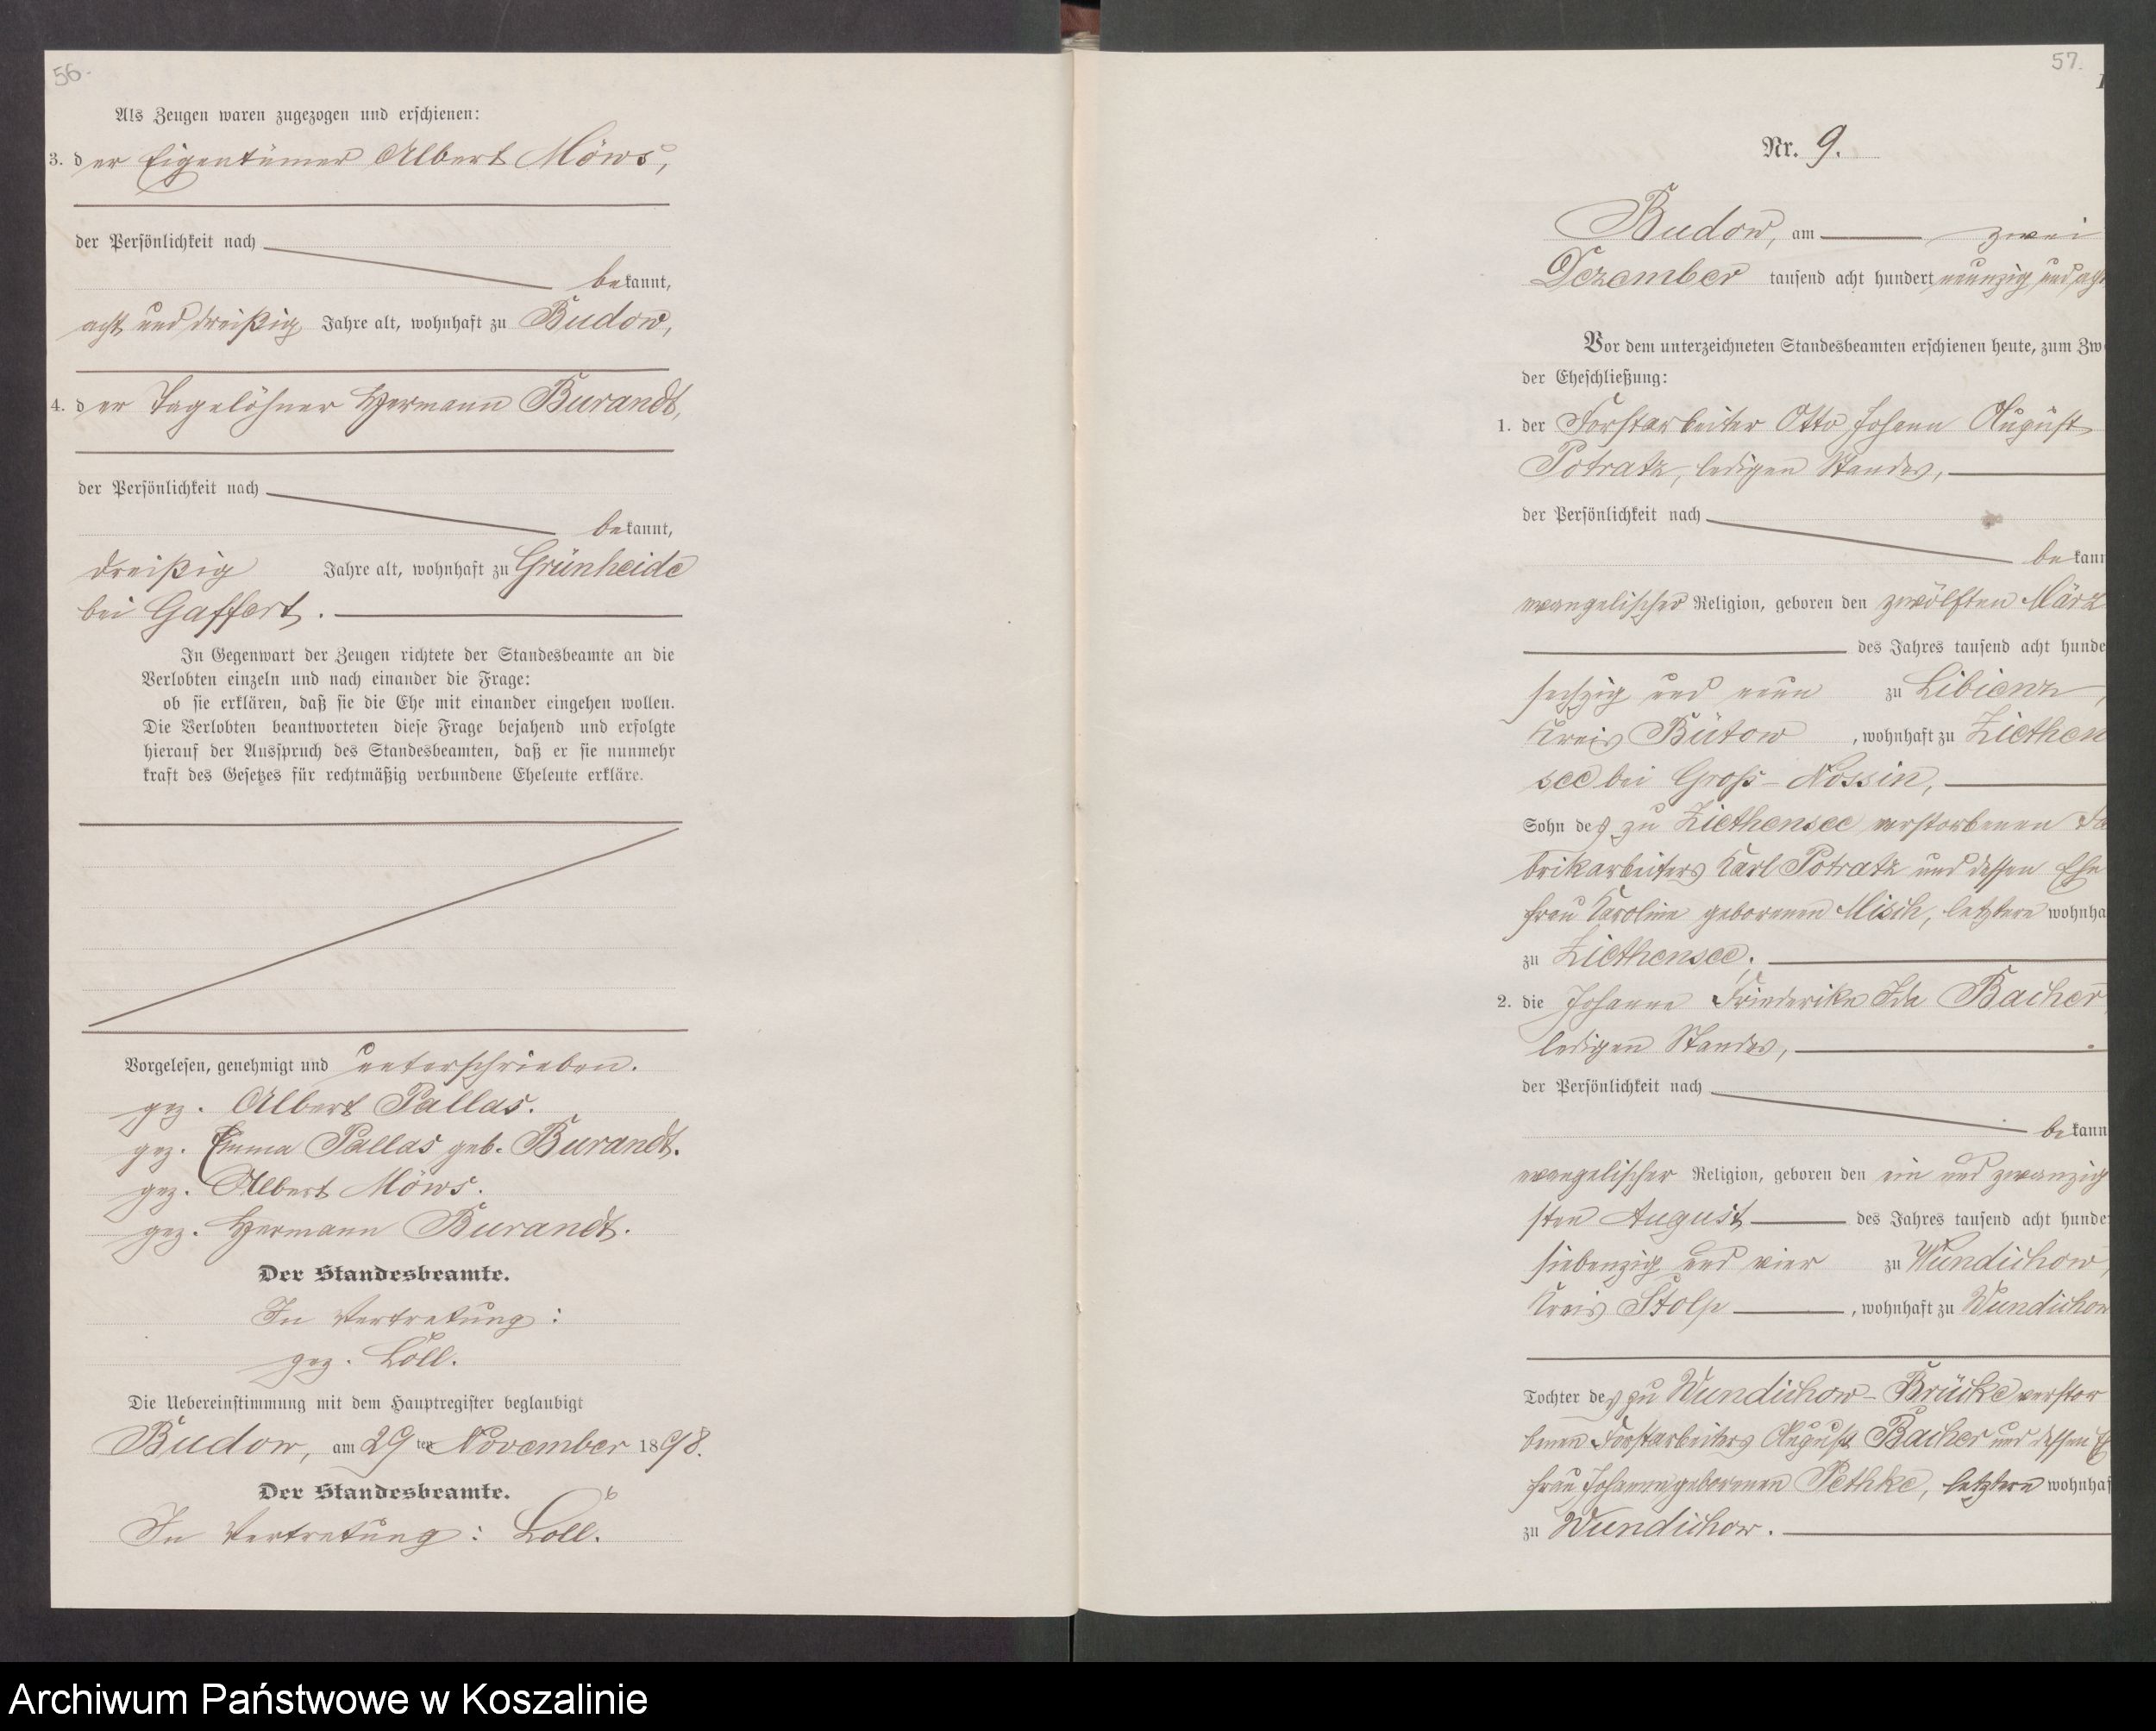 56.
Als Zeugen waren zugezogen und erschienen:
3. der Eigentümer Albert Möws,
der Persönlichkeit nach
bekannt,
acht und dreißig Jahre alt, wohnhaft zu Budow,
4. der Tagelöhner Hermann Burandt,
der Persönlichkeit nach
bekannt,
dreißig Jahre alt, wohnhaft zu Grünheide
bei Gaffert.
In Gegenwart der Zeugen richtete der Standesbeamte an die
Verlobten einzeln und nach einander die Frage:
ob sie erklären, daß sie die Ehe mit einander eingehen wollen.
Die Verlobten beantworteten diese Frage bejahend und erfolgte
hierauf der Ausspruch des Standesbeamten, daß er sie nunmehr
kraft des Gesetzes für rechtmäßig verbundene Eheleute erkläre.
Vorgelesen, genehmigt und unterschrieben.
gez. Albert Pallas.
gez. Emma Pallas geb. Burandt.
gez. Albert Möws.
gez. Hermann Burandt.
Der Standesbeamte.
In Vertretung:
gez. Löll.
Die Uebereinstimmung mit dem Hauptregister beglaubigt
Budow, am 29 ten November 1898.
Der Standesbeamte.
In Vertretung: Löll.
57.
Nr. 9.
Budow, am zwei
Dezember tausend acht hundert neunzig und ach
Vor dem unterzeichneten Standesbeamten erschienen heute, zum Zw
der Eheschließung:
1. der Forstarbeiter Otto Johann August
Potratz, ledigen Standes,
der Persönlichkeit nach
bekann
evangelischer Religion, geboren den zwölften März
des Jahres tausend acht hunde
sechzig und neun zu Libienz,
Kreis Bütow, wohnhaft zu Ziethen
see bei Groß-Nossin,
Sohn des zu Ziethensee verstorbenen Fa
brikarbeiters Karl Potratz und dessen Ehe
frau Karoline geborenen Misch, letztere wohnha
zu Ziethensee.
2. die Johanne Friederike Ida Bacher,
ledigen Standes,
der Persönlichkeit nach
bekann
evangelischer Religion, geboren den ein und zwanzig
sten August des Jahres tausend acht hunde
siebenzig und vier zu Wundichow,
Kreis Stolp, wohnhaft zu Wundichow
Tochter des zu Wundichow-Brücke verstor
benen Forstarbeiters August Bacher und dessen E
frau Johanne geborenen Pethke, letztere wohnhaf
zu Wundichow.
Archiwum Państwowe w Koszalinie